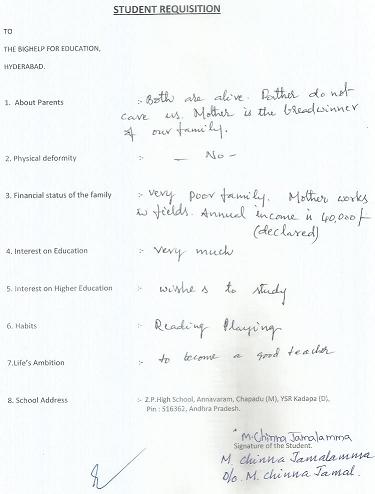 STUDENT REQUISITION
TO
THE BIGHELP FOR EDUCATION,
HYDERABAD.
1. About Parents :- Both are alive. Father do not
care us. Mother is the breadwinner
of our family.
2. Physical deformity :- – No –
3. Financial status of the family :- very poor family. Mother works
in fields. Annual income is 40,000/-
(declared)
4. Interest on Education :- very much
5. Interest on Higher Education :- wishes to study
6. Habits :- Reading Playing
7.Life's Ambition :- to become a good teacher
8. School Address :- Z.P.High School, Annavaram, Chapadu (M), YSR Kadapa (D),
Pin : 516362, Andhra Pradesh.
M. Chinna Jamalamma
Signature of the Student.
M. chinna Jamalamma
D/o. M. chinna Jamal.